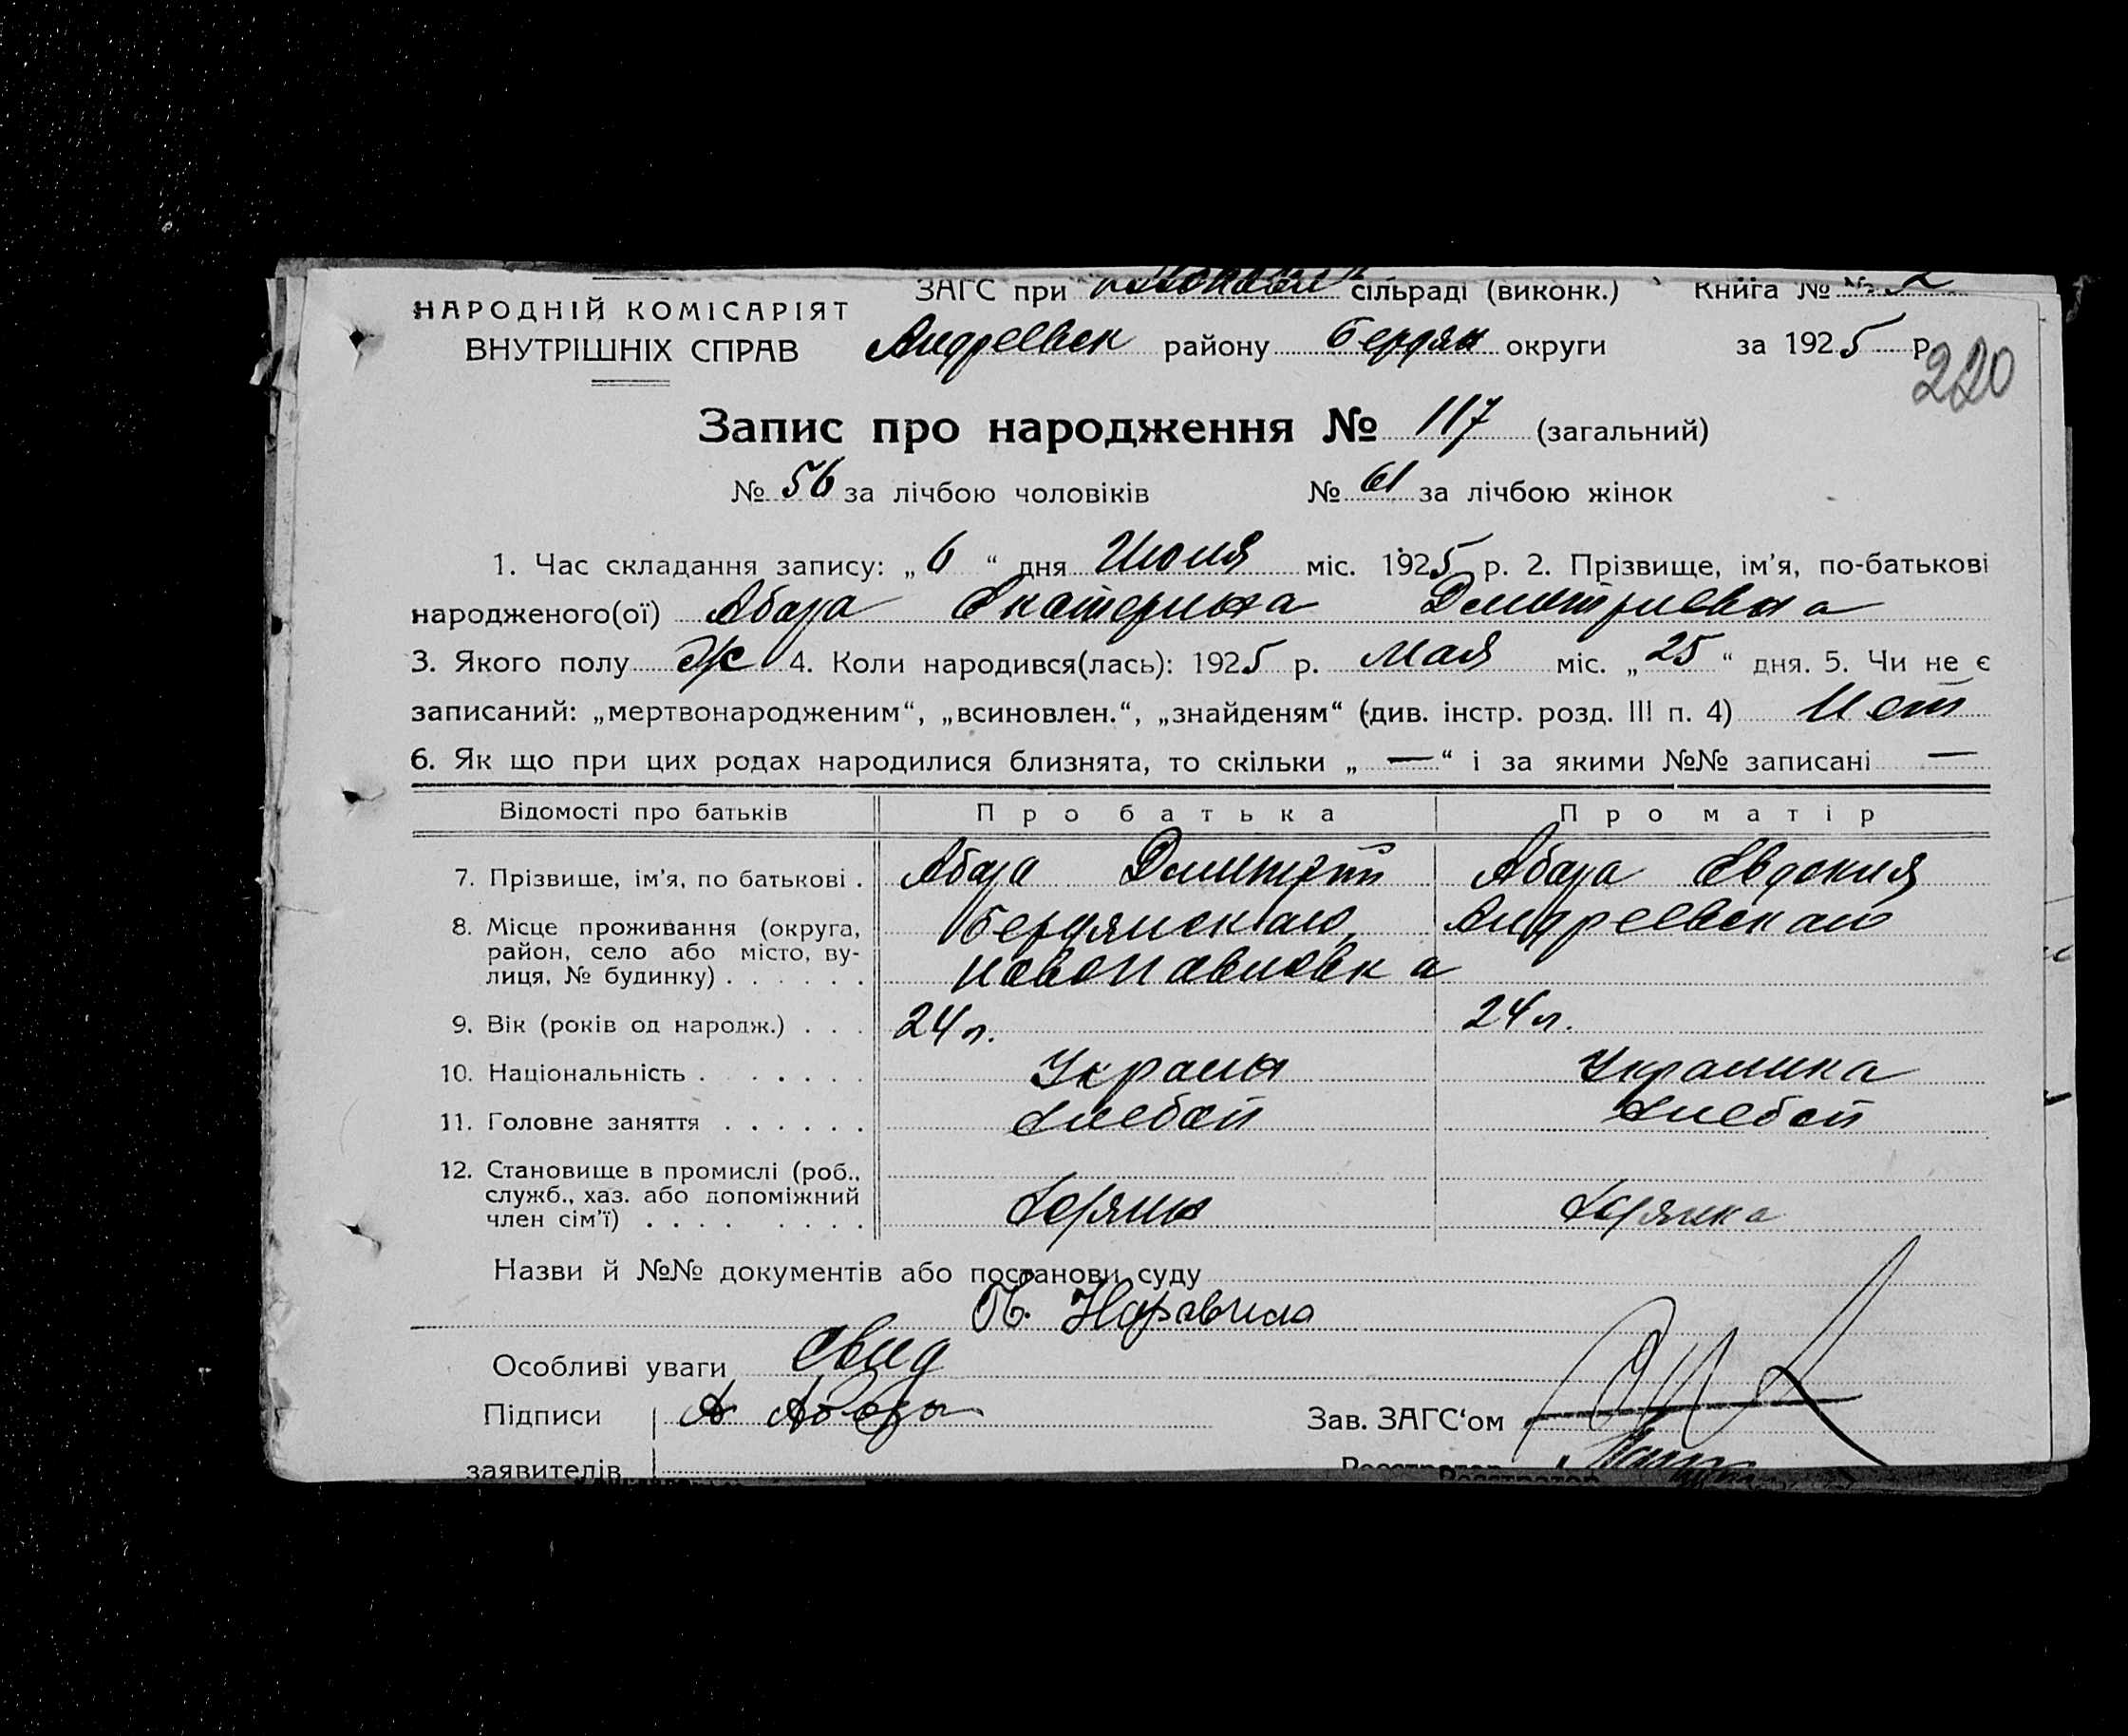 ЗАГС при сільраді (виконк.) Книга №
НАРОДНІЙ КОМІСАРІЯТ
ВНУТРІШНІХ СПРАВ Андреевск району Бердян округи за 1925 р.
220
Запис про народження № 117 (загальний)
№ 56 за лічбою чоловіків № 61 за лічбою жінок
1. Час складання запису: „6“ дня Июня міс. 1925 р. 2. Прізвище, ім'я, по-батькові
народженого(ої) Абаза Екатерина Дмитриевна
3. Якого полу Ж 4. Коли народився(лась): 1925 р. Мая міс. „25“ дня. 5. Чи не є
записаний: „мертвонародженим“, „всиновлен.“, „знайденям“ (див. інстр. розд. III п. 4) Нет
6. Як що при цих родах народилися близнята, то скільки „—“ і за якими №№ записані —
Відомості про батьків Про батька Про матір
7. Прізвище, ім'я, по батькові . Абаза Дмитрий Абаза Евдокия
8. Місце проживання (округа, Бердянскаго, Андреевскаго
район, село або місто, ву-
лиця, № будинку) . . . . . . Новопавловка
9. Вік (років од народж.) . . . 24 л. 24 л.
10. Національність . . . . . . Украин Украинка
11. Головне заняття . . . . . . Хлебоп Хлебоп
12. Становище в промислі (роб.,
служб., хаз. або допоміжний
член сім'ї) . . . . . . . .
Назви й №№ документів або постанови суду
Особливі уваги
Підписи А Абаза Зав. ЗАГС'ом
заявителів Реєстратор
Реєстратор